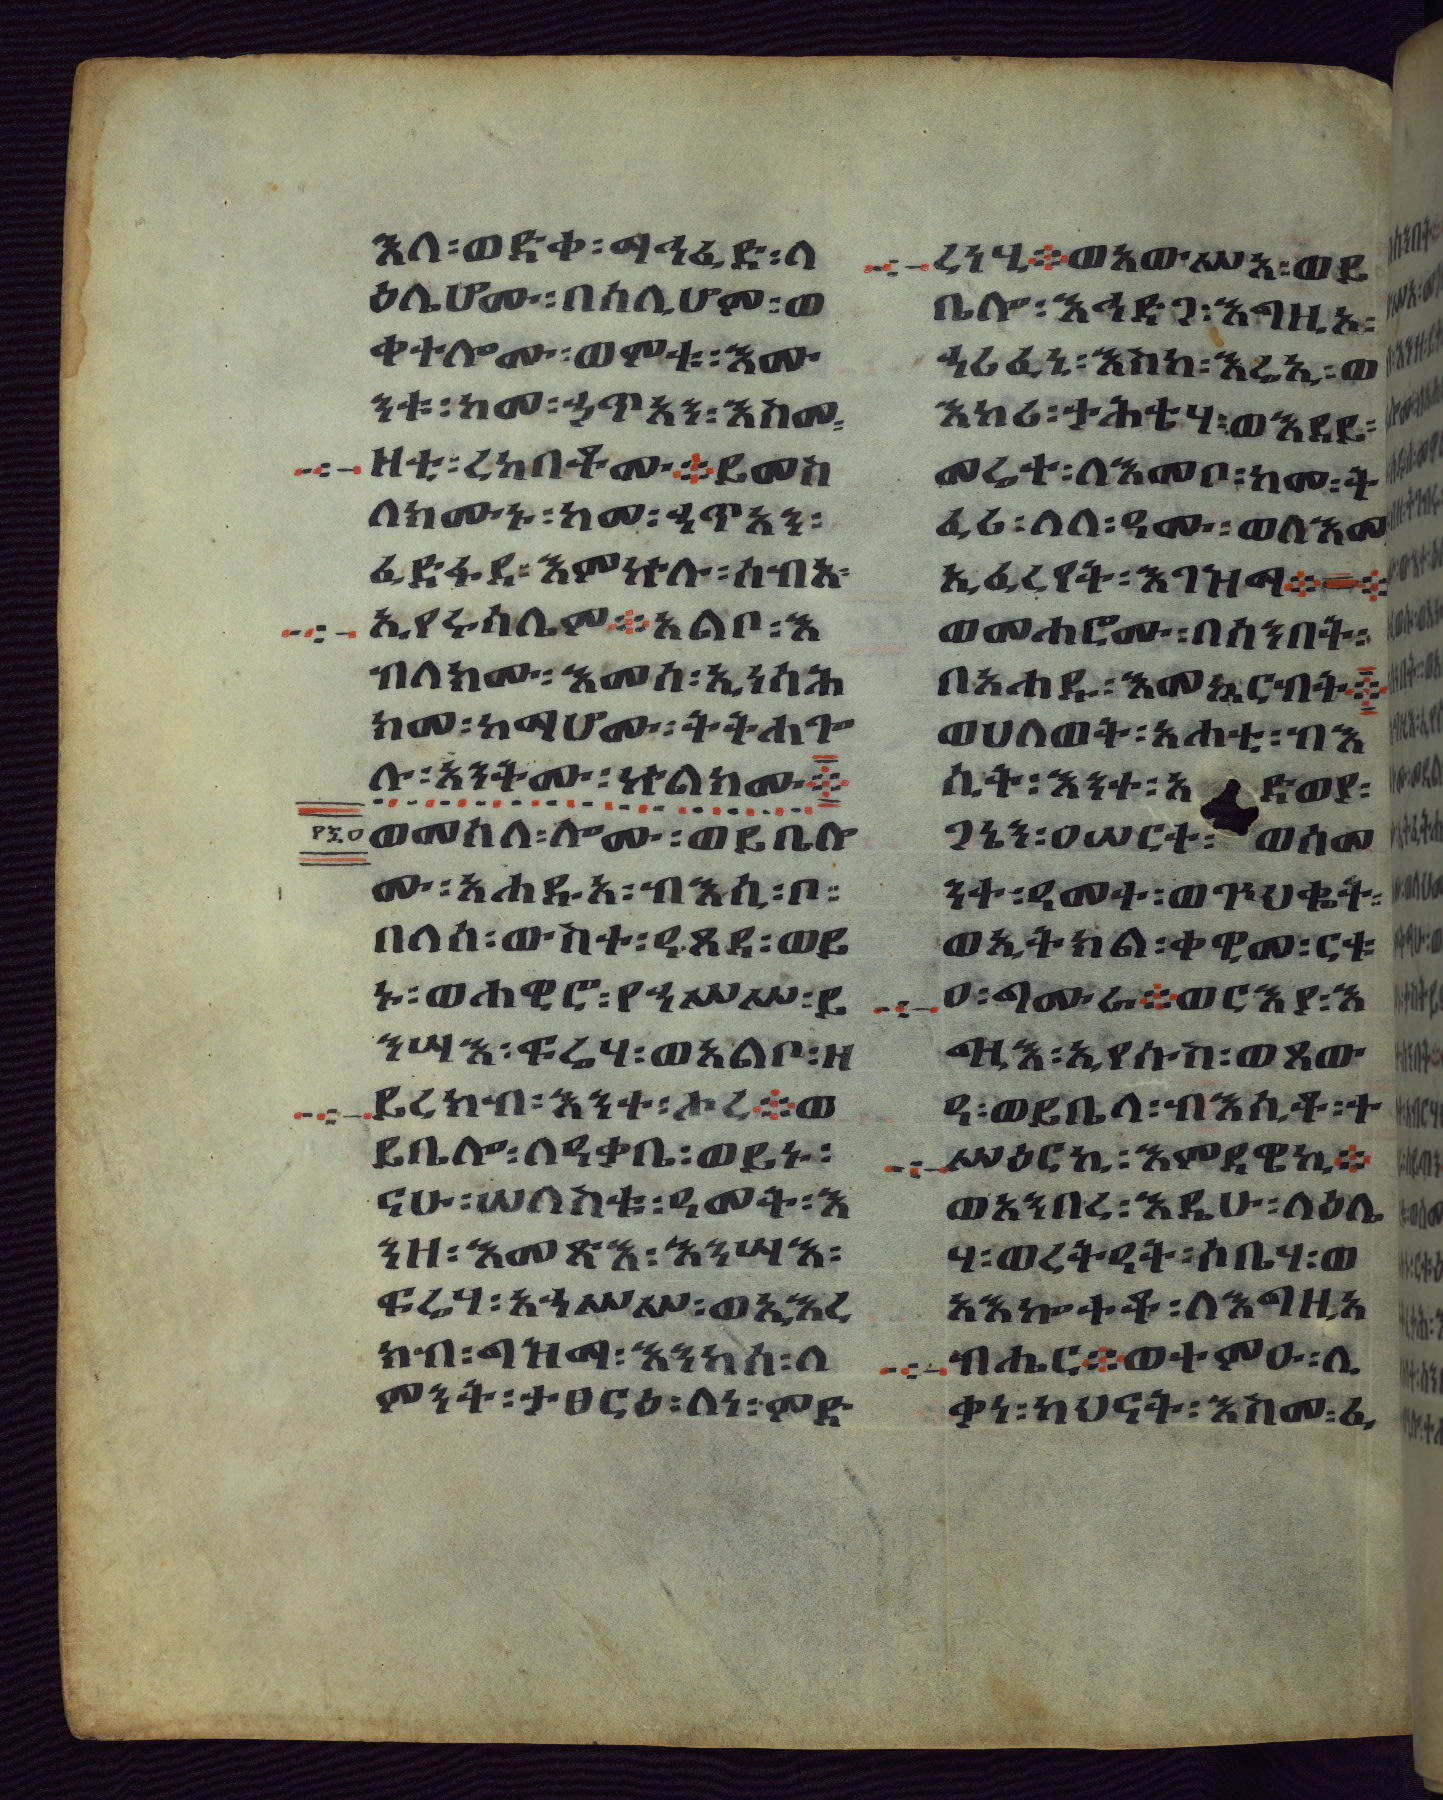 እለ፡ወድቀ፡ማኅፈድ፡ላ
ዕሌሆሙ፡በሰሊሆም፡ወ
ቀተሎሙ፡ወምቱ፡እሙ
ንቱ፡ከመ፡ኃጥአን፡እስመ፡
ዛቲ፡ረከበቶሙ፨ይመስ
ለክሙኑ፡ከመ፡ኃጥአን፡
ፈድፋደ፡እምኵሉ፡ሰብአ፡
ኢየሩሳሌም፨አልቦ፡እ
ብለክሙ፡እመሰ፡ኢነሳሕ
ክሙ፡ከማሆሙ፡ትትሐጐ
ሉ፡አንትሙ፡ኵልክሙ፨
፻፷ዐ
ወመሰለ፡ሎሙ፡ወይቤሎ
ሙ፡አሐዱአ፡ብእሲ፡ቦ፡
በለሰ፡ውስተ፡ዐጸደ፡ወይ
ኑ፡ወሐዊሮ፡የኀሥሥ፡ይ
ንሣእ፡ፍሬሃ፡ወአልቦ፡ዘ
ይረክብ፡እንተ፡ሖረ፨ወ
ይቤሎ፡ለዓቃቤ፡ወይኑ፡
ናሁ፡ሠለስቱ፡ዓመት፡እ
ንዘ፡እመጽእ፡እንሣእ፡
ፍሬሃ፡አኀሥሥ፡ወኢእረ
ክብ፡ግዝማ፡እንከሰ፡ለ
ምንት፡ታፀርዕ፡ለነ፡ምድ
ረነሂ፨ወአውሥአ፡ወይ
ቤሎ፡እኅድጋ፡እግዚኦ፡
ኃሪፈኒ፡እስከ፡እረኢ፡ወ
እከሪ፡ታሕቴሃ፡ወእደይ፡
መሬተ፡ለእመቦ፡ከመ፡ት
ፈሪ፡ለለ፡ዓሙ፡ወለእመ
ኢፈረየት፡እገዝማ፨
ወመሐሮሙ፡በሰንበት፡
በአሐዱ፡እመኳርብት፨
ወሀለወት፡አሐቲ፡ብእ
ሲት፡እንተ፡አ ድወያ፡
ጋኔን፡ዐሠርተ፡ ወሰመ
ንተ፡ዓመተ፡ወጕህቁት፡
ወኢትክል፡ቀዊመ፡ርቱ
ዐ፡ግሙራ፨ወርእያ፡እ
ግዚእ፡ኢየሱስ፡ወጸው
ዓ፡ወይቤላ፡ብእሲቶ፡ተ
ሥዕርኪ፡እምደዌኪ፨
ወአንበረ፡እዴሁ፡ላዕሌ
ሃ፡ወረትዓት፡ሶቤሃ፡ወ
አእኰተቶ፡ለእግዚአ
ብሔር፨ወተምዑ፡ሊ
ቃነ፡ካህናት፡እስመ፡ፈ